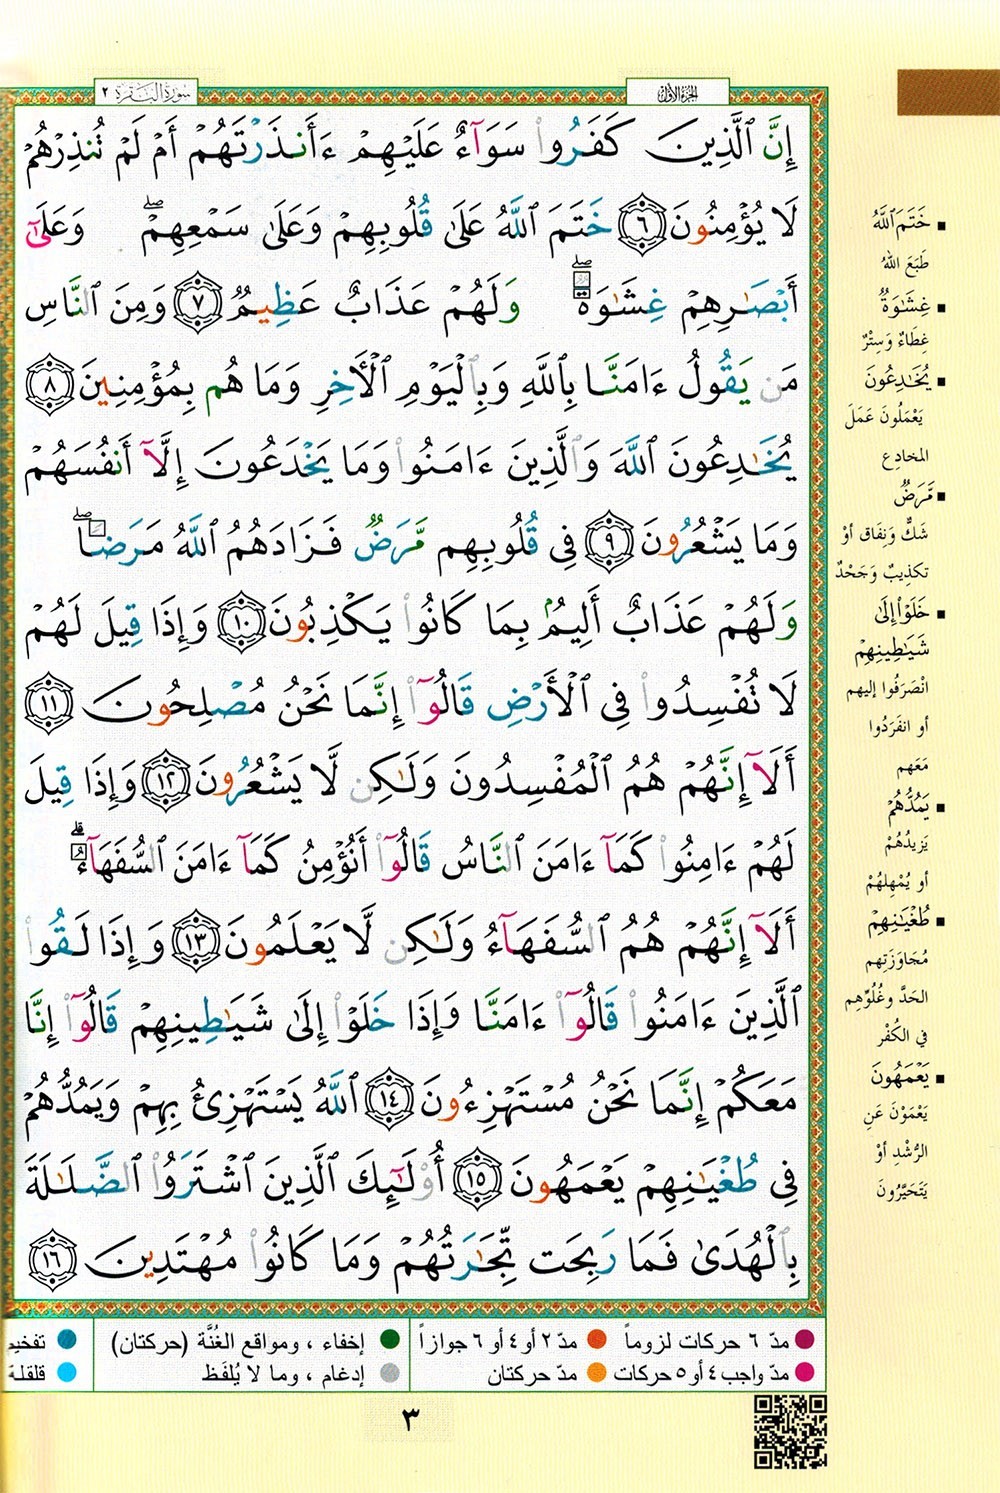 سورة البقرة ٢
الجزء الأول
إِنَّ ٱلَّذِينَ كَفَرُوا۟ سَوَآءٌ عَلَيْهِمْ ءَأَنذَرْتَهُمْ أَمْ لَمْ تُنذِرْهُمْ
لَا يُؤْمِنُونَ ٦ خَتَمَ ٱللَّهُ عَلَىٰ قُلُوبِهِمْ وَعَلَىٰ سَمْعِهِمْ ۖ وَعَلَىٰٓ
أَبْصَـٰرِهِمْ غِشَـٰوَةٌ ۖ وَلَهُمْ عَذَابٌ عَظِيمٌ ٧ وَمِنَ ٱلنَّاسِ
مَن يَقُولُ ءَامَنَّا بِٱللَّهِ وَبِٱلْيَوْمِ ٱلْـَٔاخِرِ وَمَا هُم بِمُؤْمِنِينَ ٨
يُخَـٰدِعُونَ ٱللَّهَ وَٱلَّذِينَ ءَامَنُوا۟ وَمَا يَخْدَعُونَ إِلَّآ أَنفُسَهُمْ
وَمَا يَشْعُرُونَ ٩ فِى قُلُوبِهِم مَّرَضٌ فَزَادَهُمُ ٱللَّهُ مَرَضًا ۖ
وَلَهُمْ عَذَابٌ أَلِيمٌۢ بِمَا كَانُوا۟ يَكْذِبُونَ ١٠ وَإِذَا قِيلَ لَهُمْ
لَا تُفْسِدُوا۟ فِى ٱلْأَرْضِ قَالُوٓا۟ إِنَّمَا نَحْنُ مُصْلِحُونَ ١١
أَلَآ إِنَّهُمْ هُمُ ٱلْمُفْسِدُونَ وَلَـٰكِن لَّا يَشْعُرُونَ ١٢ وَإِذَا قِيلَ
لَهُمْ ءَامِنُوا۟ كَمَآ ءَامَنَ ٱلنَّاسُ قَالُوٓا۟ أَنُؤْمِنُ كَمَآ ءَامَنَ ٱلسُّفَهَآءُ ۗ
أَلَآ إِنَّهُمْ هُمُ ٱلسُّفَهَآءُ وَلَـٰكِن لَّا يَعْلَمُونَ ١٣ وَإِذَا لَقُوا۟
ٱلَّذِينَ ءَامَنُوا۟ قَالُوٓا۟ ءَامَنَّا وَإِذَا خَلَوْا۟ إِلَىٰ شَيَـٰطِينِهِمْ قَالُوٓا۟ إِنَّا
مَعَكُمْ إِنَّمَا نَحْنُ مُسْتَهْزِءُونَ ١٤ ٱللَّهُ يَسْتَهْزِئُ بِهِمْ وَيَمُدُّهُمْ
فِى طُغْيَـٰنِهِمْ يَعْمَهُونَ ١٥ أُو۟لَـٰٓئِكَ ٱلَّذِينَ ٱشْتَرَوُا۟ ٱلضَّلَـٰلَةَ
بِٱلْهُدَىٰ فَمَا رَبِحَت تِّجَـٰرَتُهُمْ وَمَا كَانُوا۟ مُهْتَدِينَ ١٦
خَتَمَ ٱللَّهُ
طَبَعَ اللهُ
غِشَـٰوَةٌ
غِطَاءٌ وَسِتْرٌ
يُخَـٰدِعُونَ
يَعْمَلُونَ عَمَلَ
المخادِع
مَّرَضٌ
شَكٌّ وَنِفَاق أوْ
تكذِيبٌ وَجَحْدٌ
خَلَوْا۟ إِلَىٰ
شَيَـٰطِينِهِمْ
انْصَرَفُوا إليهم
أو انفَرَدُوا
مَعَهم
يَمُدُّهُمْ
يَزيدُهُمْ
أو يُمْهِلهُمْ
طُغْيَـٰنِهِمْ
مُجَاوَزَتِهم
الحَدَّ وغُلُوِّهِم
في الكُفْر
يَعْمَهُونَ
يَعْمَوْنَ عَنِ
الرُّشْدِ أوْ
يَتَحَيَّرُونَ
مدّ ٦ حركات لزوماً مدّ ٢ أو ٤ أو ٦ جوازاً إخفاء ، ومواقع الغُنَّة (حركتان) تفخيم
مدّ واجب ٤ أو ٥ حركات مدّ حركتان إدغام ، وما لا يُلفَظ قلقلة
٣